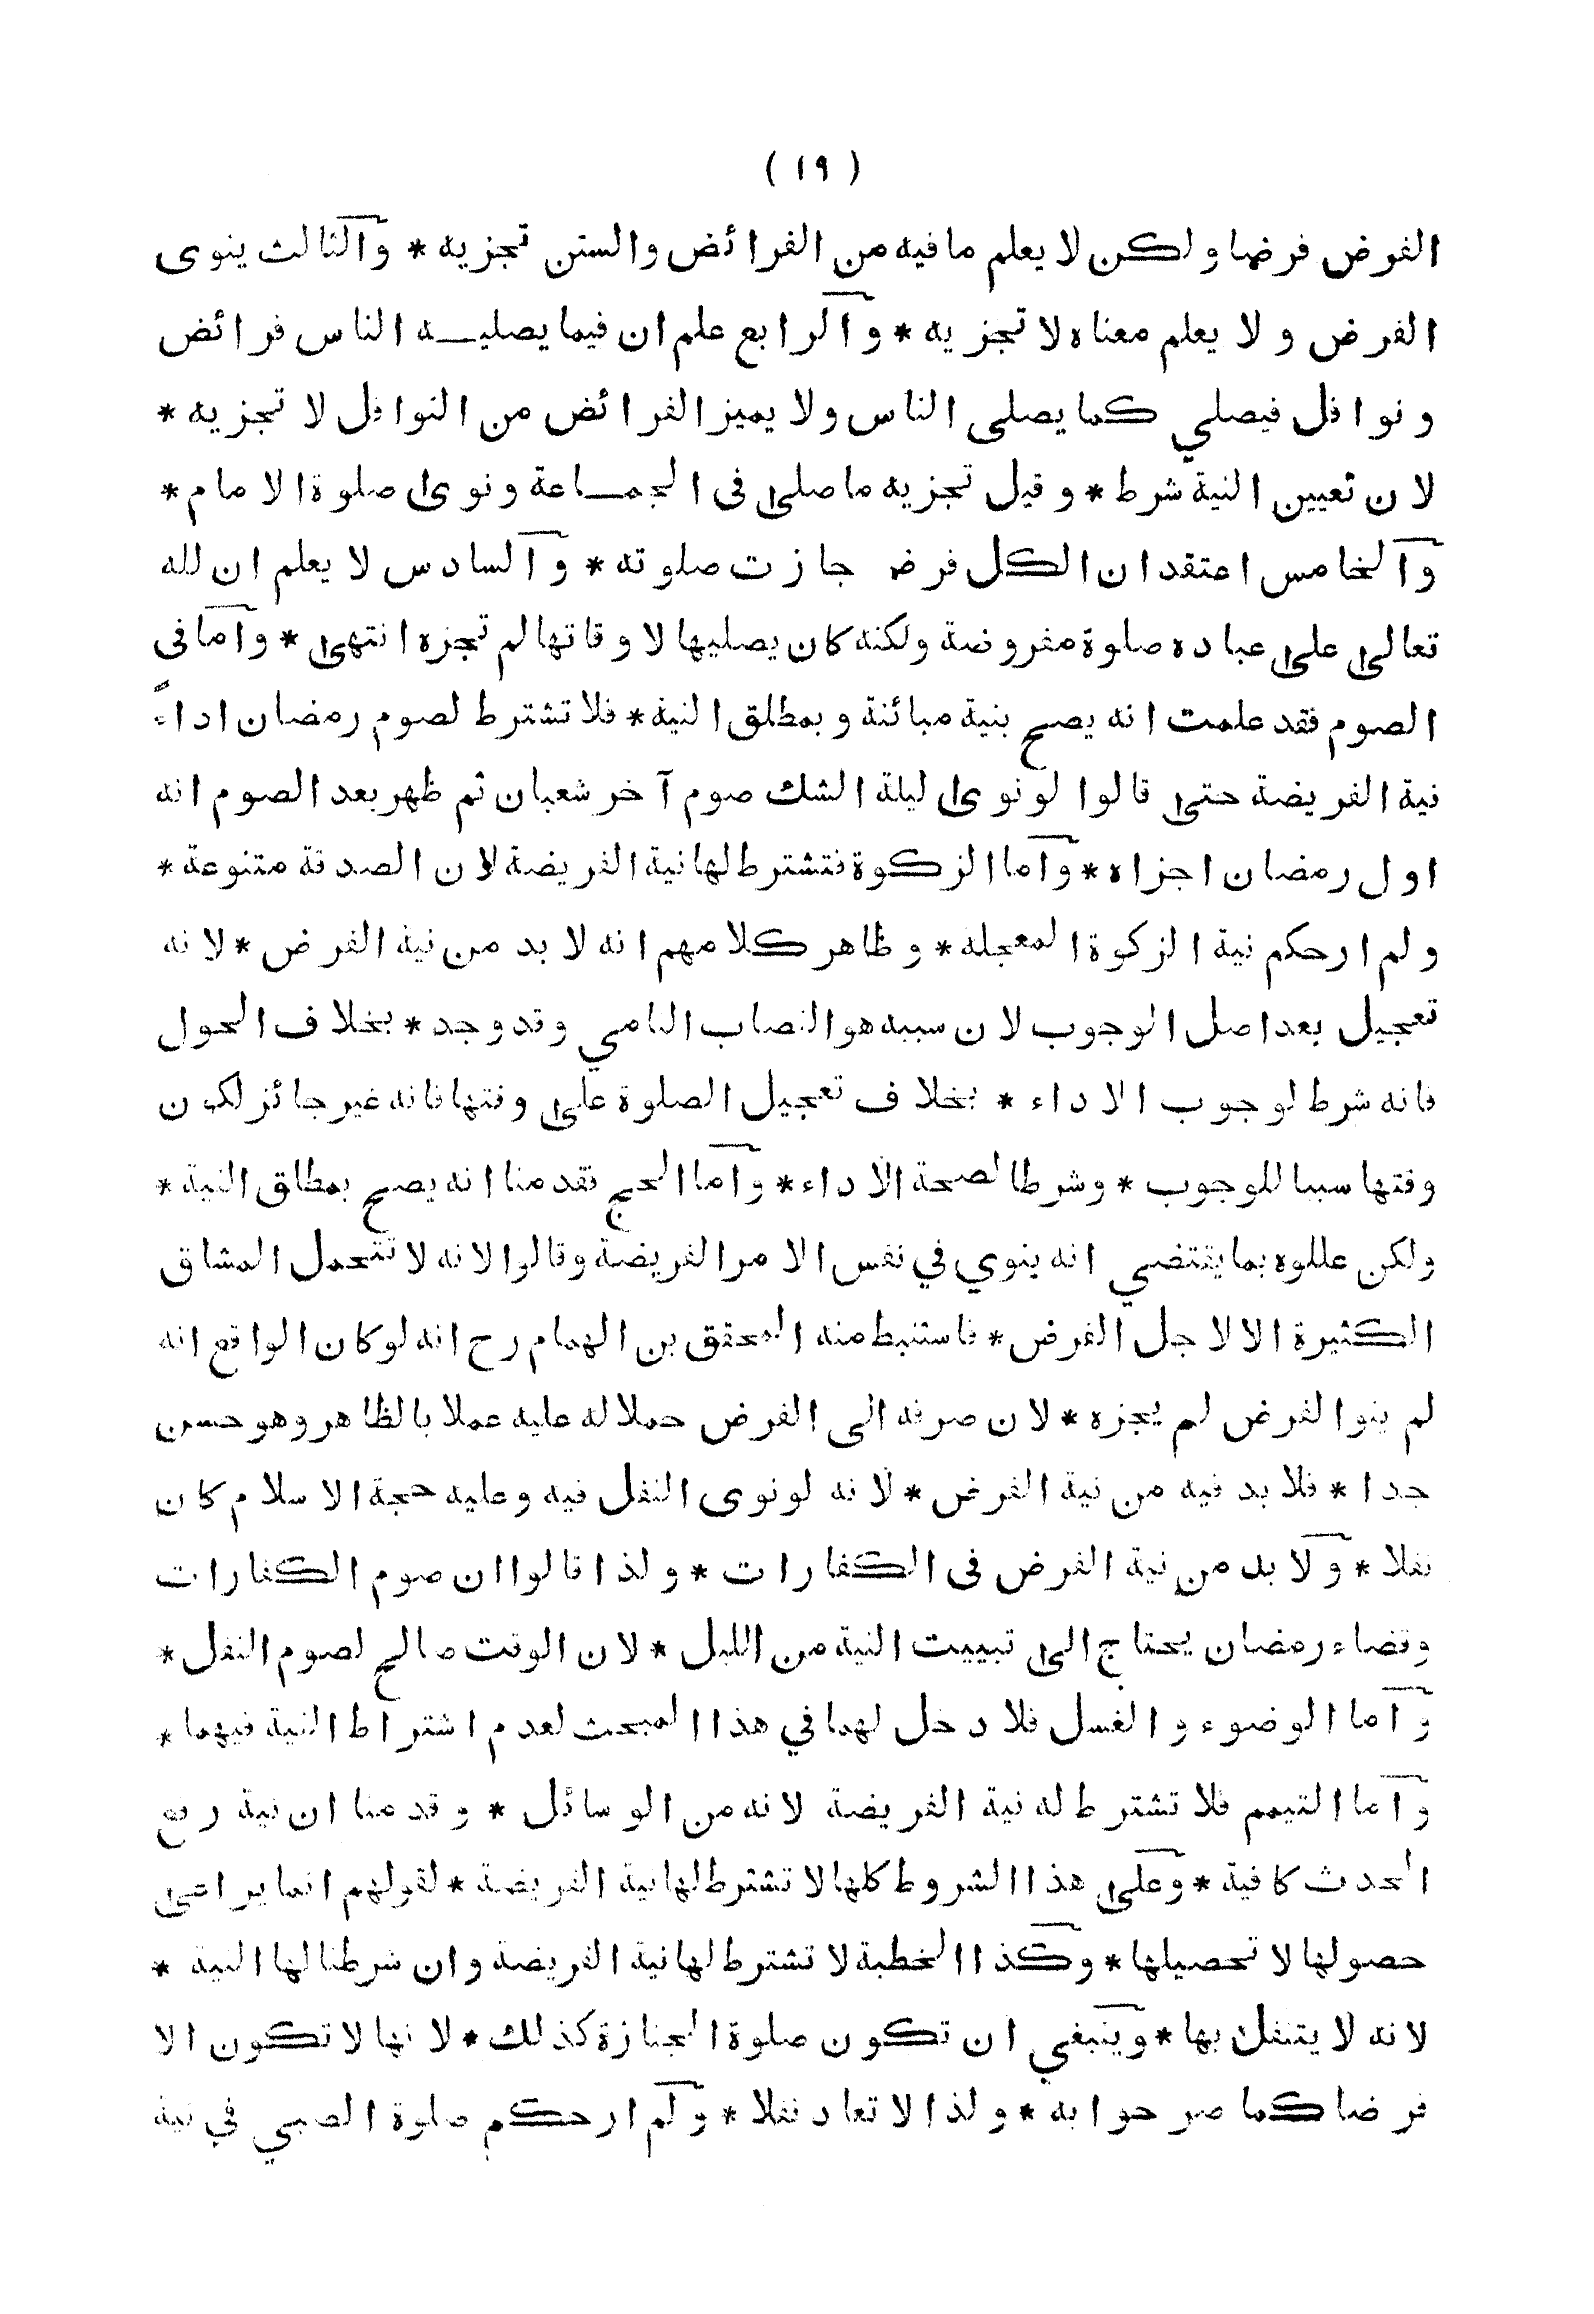 ( ١٩ )
الفرض فرضا ولكن لا يعلم ما فيه من الفرائض والسنن تجزيه * والثالث ينوى
الفرض ولا يعلم معناه لا تجزيه * والرابع علم ان فيما يصليه الناس فرائض
ونوافل فيصلي كما يصلى الناس ولا يميز الفرائض من النوافل لا تجزيه *
لان تعيين النية شرط * وقيل تجزيه ما صلى فى الجماعة ونوى صلوة الامام *
والخامس اعتقد ان الكل فرض جازت صلوته * والسادس لا يعلم ان لله
تعالى على عباده صلوة مفروضة ولكنه كان يصليها لاوقاتها لم تجزه انتهى * واما فى
الصوم فقد علمت انه يصح بنية مبائنة وبمطلق النية * فلا تشترط لصوم رمضان اداءً
نية الفريضة حتى قالوا لو نوى ليلة الشك صوم آخر شعبان ثم ظهر بعد الصوم انه
اول رمضان اجزاه * واما الزكوة فتشترط لها نية الفريضة لان الصدقة متنوعة *
ولم ار حكم نية الزكوة المعجلة * وظاهر كلامهم انه لا بد من نية الفرض * لانه
تعجيل بعد اصل الوجوب لان سببه هو النصاب النامي وقد وجد * بخلاف الحول
فانه شرط لوجوب الاداء * بخلاف تعجيل الصلوة على وقتها فانه غير جائز لكون
وقتها سببا للوجوب * وشرطا لصحة الاداء * واما الحج فقدمنا انه يصح بمطلق النية *
ولكن عللوه بما يقتضي انه ينوي في نفس الامر الفريضة وقالوا لانه لا تتحمل المشاق
الكثيرة الا لاجل الفرض * فاستنبط منه المحقق بن الهمام رح انه لو كان الواقع انه
لم ينو الفرض لم يجزه * لان صرفه الى الفرض حملا له عليه عملا بالظاهر وهو حسن
جدا * فلا بد فيه من نية الفرض * لانه لو نوى النفل فيه وعليه حجة الاسلام كان
نفلا * ولا بد من نية الفرض فى الكفارات * ولذا قالوا ان صوم الكفارات
وقضاء رمضان يحتاج الى تبييت النية من الليل * لان الوقت صالح لصوم النفل *
واما الوضوء والغسل فلا دخل لهما في هذا المبحث لعدم اشتراط النية فيهما *
واما التيمم فلا تشترط له نية الفريضة لانه من الوسائل * وقدمنا ان نية رفع
الحدث كافية * وعلى هذا الشروط كلها لا تشترط لها نية الفريضة * لقولهم انما يراعى
حصولها لا تحصيلها * وكذا الخطبة لا تشترط لها نية الفريضة وان شرطنا لها النية *
لانه لا يتنفل بها * وينبغي ان تكون صلوة الجنازة كذلك * لانها لا تكون الا
فرضا كما صرحوا به * ولذا لا تعاد نفلا * ولم ار حكم صلوة الصبي في نية